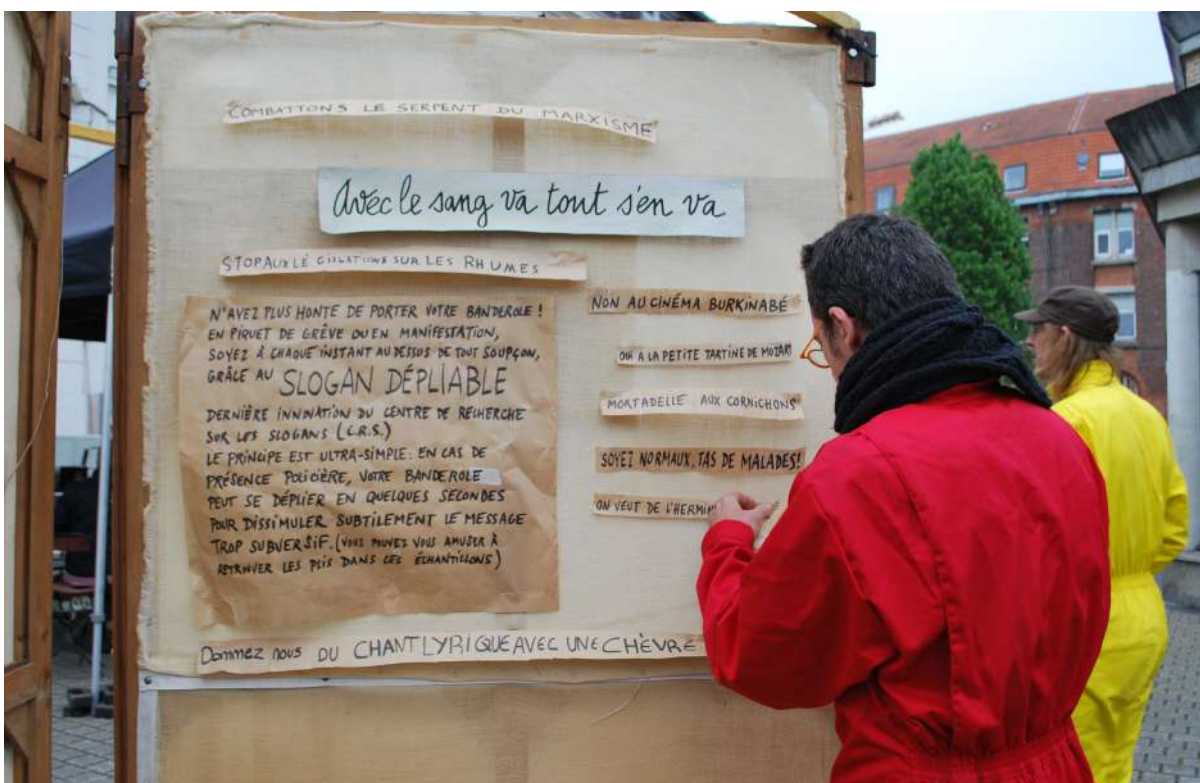 COMBATTONS LE SERPENT DU MARXISME
Avec le sang va tout s'en va
STOP AUX LÉGISLATIONS SUR LES RHUMES
N'AVEZ PLUS HONTE DE PORTER VOTRE BANDEROLE !
EN PIQUET DE GRÈVE OU EN MANIFESTATION,
SOYEZ À CHAQUE INSTANT AU DESSUS DE TOUT SOUPÇON,
GRÂCE AU SLOGAN DÉPLIABLE
DERNIÈRE INNOVATION DU CENTRE DE RECHERCHE
SUR LES SLOGANS (C.R.S.)
LE PRINCIPE EST ULTRA-SIMPLE: EN CAS DE
PRÉSENCE POLICIÈRE, VOTRE BANDEROLE
PEUT SE DÉPLIER EN QUELQUES SECONDES
POUR DISSIMULER SUBTILEMENT LE MESSAGE
TROP SUBVERSIF. (VOUS POUVEZ VOUS AMUSER À
RETROUVER LES PLIS DANS CES ÉCHANTILLONS)
NON AU CINÉMA BURKINABÉ
OUI A LA PETITE TARTINE DE MOZART
MORTADELLE AUX CORNICHONS
SOYEZ NORMAUX, TAS DE MALADES!
ON VEUT DE
Donnez nous DU CHANT LYRIQUE AVEC UNE CHÈVRE